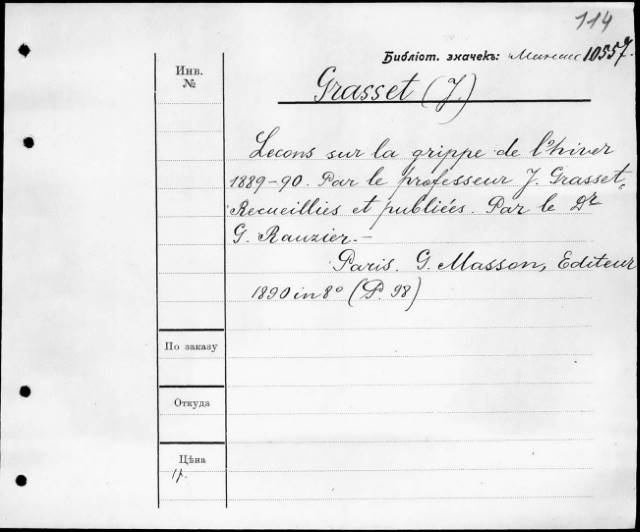 114
Библіот. значекъ: 10557.
Инв.
№
Grasset (J.)
Lecons sur la grippe de l'hiver
1889-90. Par le professeur J. Grasset,
Recueillies et publiées. Par le Dr
G. Rauzier.-
Paris. G. Masson, Editeur
1890 in 8° (P. 98)
По заказу
Откуда
Цѣна
1р.